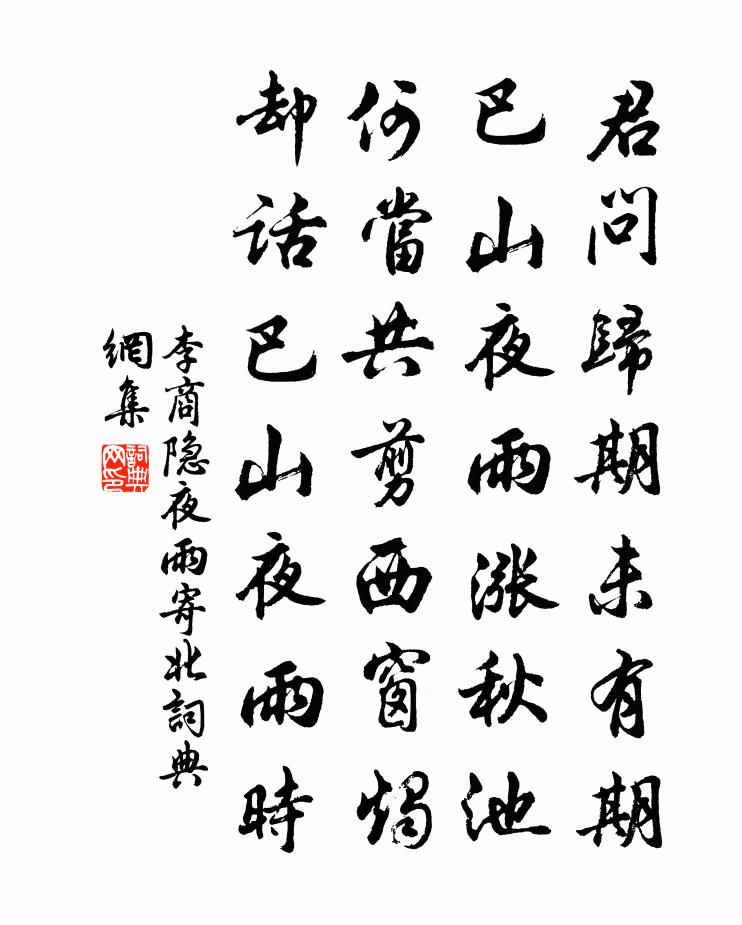 君問歸期未有期
巴山夜雨漲秋池
何當共剪西窗燭
却話巴山夜雨時
李商隐夜雨寄北詞典
網集
詞典
网印